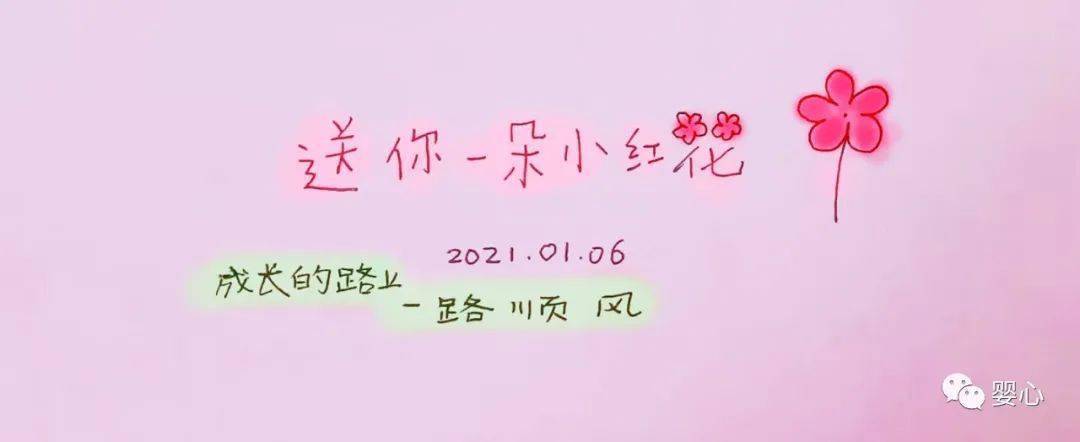 送你一朵小红花
2021.01.06
成长的路上
一路顺风
婴心